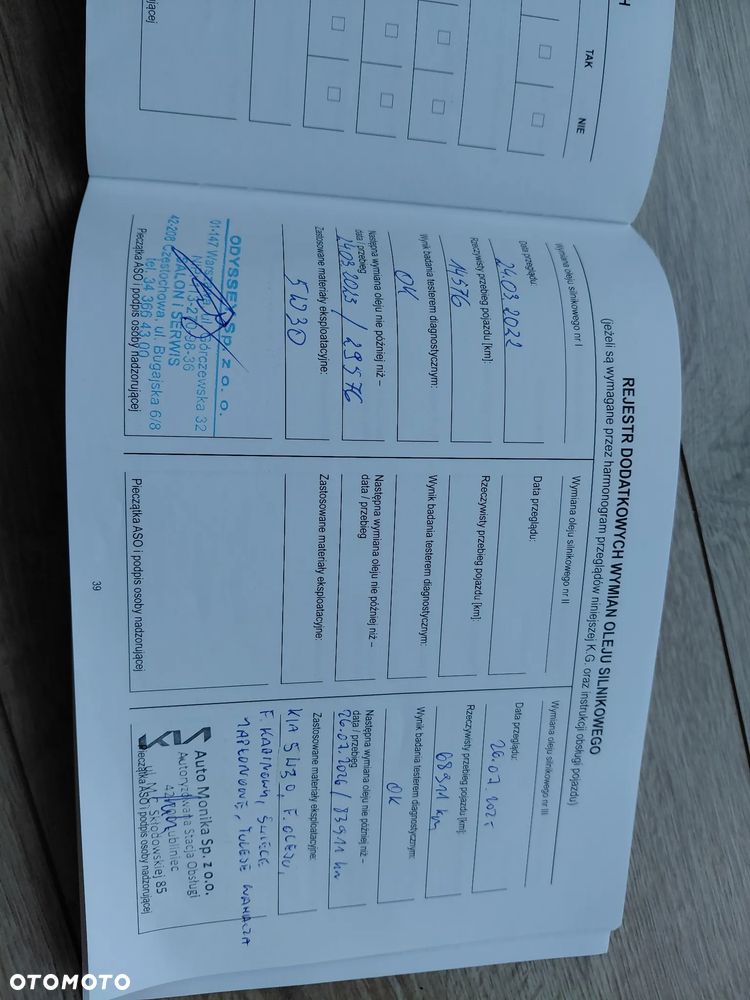 TAK
NIE
REJESTR DODATKOWYCH WYMIAN OLEJU SILNIKOWEGO
(jeżeli są wymagane przez harmonogram przeglądów niniejszej K.G. oraz instrukcji obsługi pojazdu)
Wymiana oleju silnikowego nr I
Data przeglądu:
24.03.2022
Rzeczywisty przebieg pojazdu [km]:
14576
Wynik badania testerem diagnostycznym:
OK
Następna wymiana oleju nie później niż –
data / przebieg
24.03.2023 / 29576
Zastosowane materiały eksploatacyjne:
5W30
ODYSSEY Sp. z o. o.
01-147 Warszawa, ul. Górczewska 32
SALON I SERWIS
42-208 Częstochowa, ul. Bugajska 6/8
tel. 34 366 43 00
Pieczątka ASO i podpis osoby nadzorującej
Wymiana oleju silnikowego nr II
Data przeglądu:
Rzeczywisty przebieg pojazdu [km]:
Wynik badania testerem diagnostycznym:
Następna wymiana oleju nie później niż –
data / przebieg
Zastosowane materiały eksploatacyjne:
Pieczątka ASO i podpis osoby nadzorującej
Wymiana oleju silnikowego nr III
Data przeglądu:
26.07.2025
Rzeczywisty przebieg pojazdu [km]:
68911 km
Wynik badania testerem diagnostycznym:
OK
Następna wymiana oleju nie później niż –
data / przebieg
26.07.2026 / 83911 km
Zastosowane materiały eksploatacyjne:
KIA 5W30, F. OLEJU,
F. KABINOWY, ŚWIECE
ZAPŁONOWE, TULEJE WAHACZA
Auto Monika Sp. z o.o.
Autoryzowana Stacja Obsługi
Lubliniec
Skłodowskiej 85
Pieczątka ASO i podpis osoby nadzorującej
39
OTOMOTO